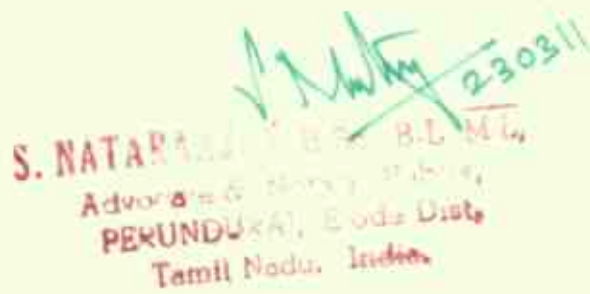 230311
S. NATARAJAN B.Sc. B.L. M.L.,
Advocate & Notary Public,
PERUNDURAI, Erode Dist,
Tamil Nadu. India.